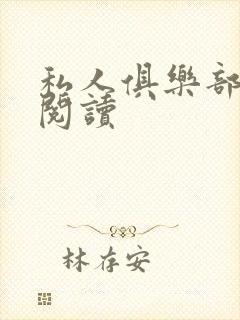 私人俱樂部
閱讀
林存安